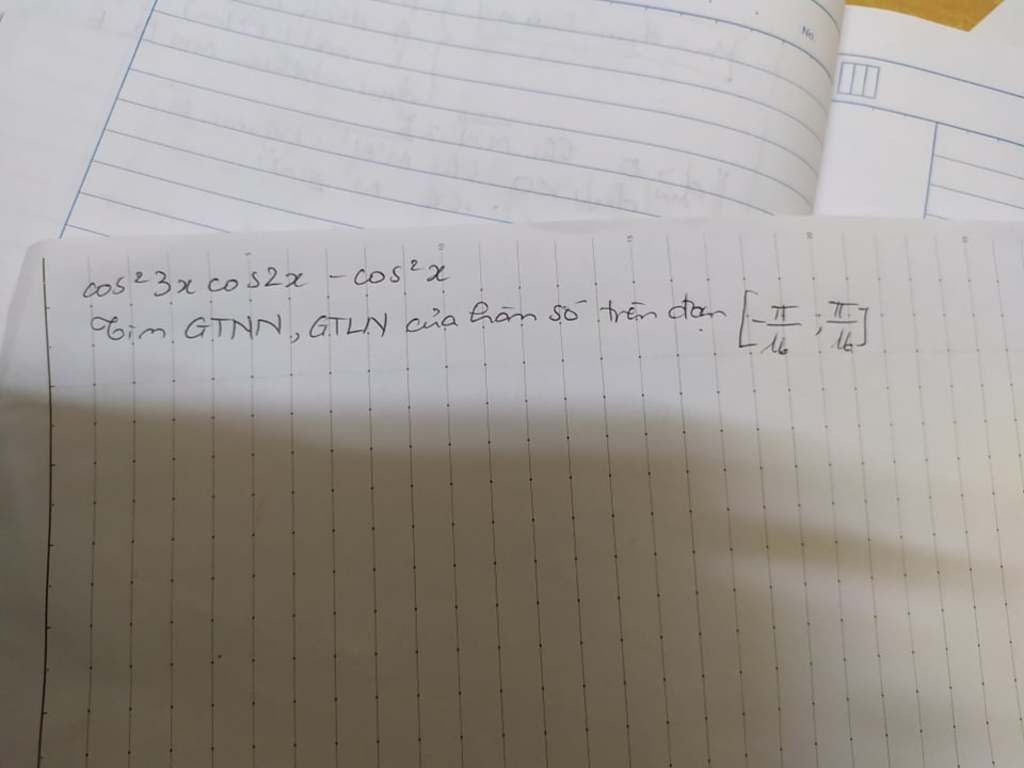 No.
cos²3x cos2x - cos²x
Tìm GTNN, GTLN của hàm số trên đoạn [-π/16; π/16]